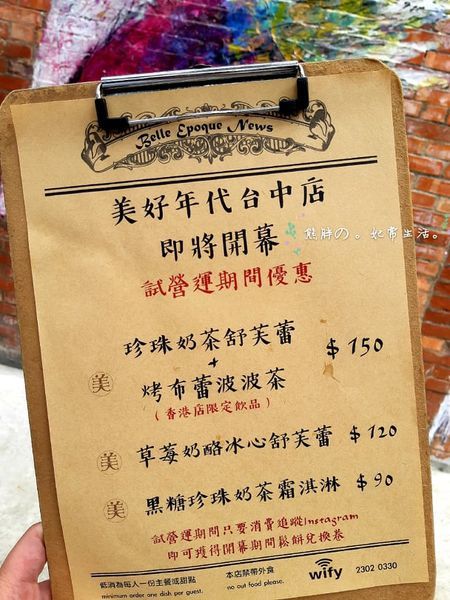 Belle Epoque News
美好年代台中店
即將開幕
試營運期間優惠
熊胖の。妃常生活。
珍珠奶茶舒芙蕾
+
$ 150
美
烤布蕾波波茶
(香港店限定飲品)
美
草莓奶酪冰心舒芙蕾 $ 120
美
黑糖珍珠奶茶霜淇淋 $ 90
試營運期間只要消費追蹤Instagram
即可獲得開幕期間鬆餅兌換卷
低消為每人一份主餐或甜點
minimum order one dish per guest.
本店禁帶外食
no out food please.
wify
2302 0330